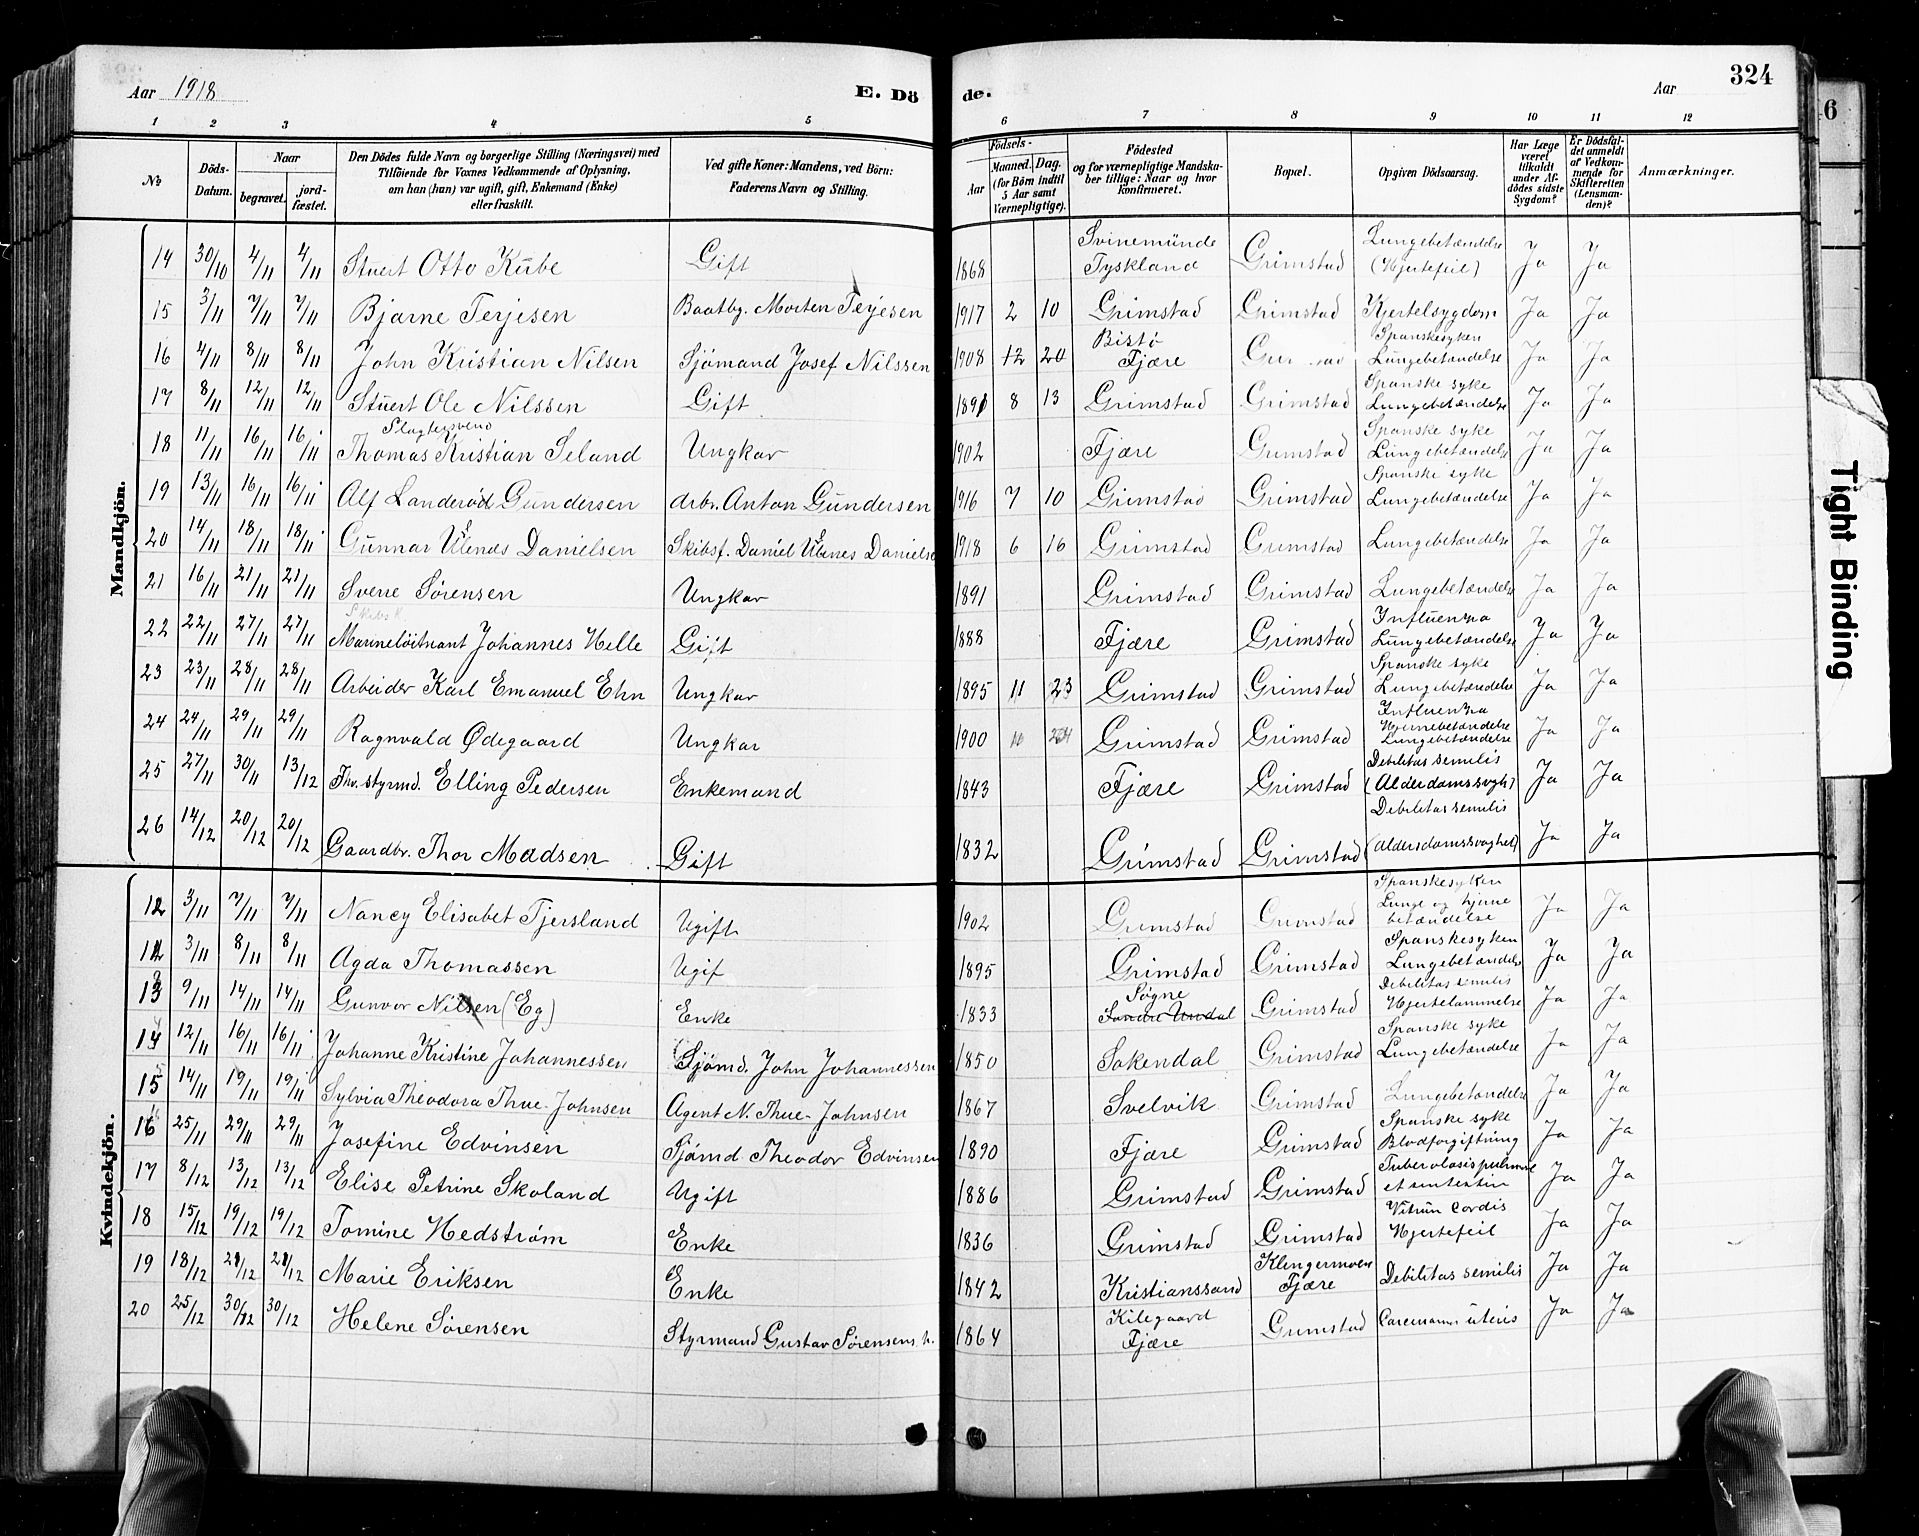 Aar 1918 E. Dö de. Aar 324
1 2 3 4 5 6 7 8 9 10 11 12
No. Döds-Datum. Naar begravet. jordfæstet. Den Dödes fulde Navn og borgerlige Stilling (Næringsvei) med Tilföiende for Voxnes Vedkommende af Oplysning, om han (hun) var ugift, gift, Enkemand (Enke) eller fraskilt. Ved gifte Koner: Mandens, ved Börn: Faderens Navn og Stilling. Födsels- Aar Maaned. Dag. (for Börn indtil 5 Aar samt Værnepligtige). Födested og for værnepligtige Mandskaber tillige: Naar og hvor konfirmeret. Bopæl. Opgiven Dödsaarsag. Har Læge været tilkaldt under Afdödes sidste Sygdom? Er Dödsfaldet anmeldt af Vedkommende for Skifteretten (Lensmanden)? Anmærkninger.
Mandkjön.
14 30/10 4/11 4/11 Stuert Otto Kube Gift 1868 Svinemünde Tyskland Grimstad Lungebetændelse (Hjertefeil) Ja Ja
15 3/11 7/11 7/11 Bjarne Terjesen Baatbg. Morten Terjesen 1917 2 10 Grimstad Grimstad Kjertelsygdom Ja Ja
16 4/11 8/11 8/11 John Kristian Nilsen Sjömand Josef Nilssen 1908 12 20 Bistö Fjære Spanskesyken Lungebetændelse Ja Ja
17 8/11 12/11 12/11 Stuert Ole Nilssen Gift 1891 8 13 Grimstad Grimstad Spanske syke Lungebetændelse Ja Ja
18 11/11 16/11 16/11 Slagtersvend Thomas Kristian Seland Ungkar 1902 Fjære Grimstad Spanske syke Lungebetændelse Ja Ja
19 13/11 16/11 16/11 Alf Landerød Gundersen Arb. Anton Gundersen 1916 7 10 Grimstad Grimstad Spanske syke Lungebetændelse Ja Ja
20 14/11 18/11 18/11 Gunnar Danielsen Skibsf. Daniel 1918 6 16 Grimstad Grimstad Lungebetændelse Ja Ja
21 16/11 21/11 21/11 Sverre Sørensen Ungkar 1891 Grimstad Grimstad Lungebetændelse Ja Ja
22 22/11 27/11 27/11 Marineløitnant Johannes Helle Gift 1888 Fjære Grimstad Influenza Lungebetændelse Ja Ja
23 23/11 28/11 28/11 Arbeider Karl Emanuel Ehn Ungkar 1895 11 23 Grimstad Grimstad Spanske syke Lungebetændelse Ja Ja
24 24/11 29/11 29/11 Ragnvald Ødegaard Ungkar 1900 Grimstad Grimstad Influenza Hjernebetændelse Lungebetændelse Ja Ja
25 27/11 30/11 13/12 Fhv. styrmd. Elling Pedersen Enkemand 1843 Fjære Grimstad Debilitas senilis (Alderdomssvgh) Ja Ja
26 14/12 20/12 20/12 Gaardbr. Thor Madsen Gift 1832 Grimstad Grimstad Debilitas senilis (Alderdomssvaghet) Ja Ja
Kvindekjön.
12 3/11 7/11 7/11 Nancy Elisabet Tjersland Ugift 1902 Grimstad Grimstad Spanskesyken Lunge og hjerne betændelse Ja Ja
3/11 8/11 8/11 Agda Thomassen Ugif 1895 Grimstad Grimstad Spanskesyken Lungebetændelse Ja Ja
13 9/11 14/11 14/11 Gunvor Nilsen (Eg) Enke 1833 Søgne Søndre Undal Grimstad Debilitas senilis Hjertelammelse Ja Ja
14 12/11 16/11 16/11 Johanne Kristine Johannessen Sjømd. John Johannessen 1850 Sokendal Grimstad Spanske syke Lungebetændelse Ja Ja
15 14/11 19/11 19/11 Sylvia Theodora Thue-Johnsen Agent N. Thue-Johnsen 1867 Svelvik Grimstad Lungebetændelse Ja Ja
16 25/11 29/11 29/11 Josefine Edvinsen Sjømd. Theodor Edvinsen 1890 Fjære Grimstad Spanske syke Blodforgiftning Ja Ja
17 8/12 13/12 13/12 Elise Petrine Skoland Ugift 1886 Grimstad Grimstad Ja Ja
18 15/12 19/12 19/12 Tomine Hedstrøm Enke 1836 Grimstad Grimstad Vitium cordis Hjertefeil Ja Ja
19 18/12 Marie Eriksen Enke 1842 Kristianssand Klingermoen Fjære Debilitas senilis Ja Ja
20 25/12 30/12 30/12 Helene Sørensen Styrmand Gustav Sørensens h. 1864 Kilegaard Fjære Grimstad uteris Ja Ja
Tight Binding
6